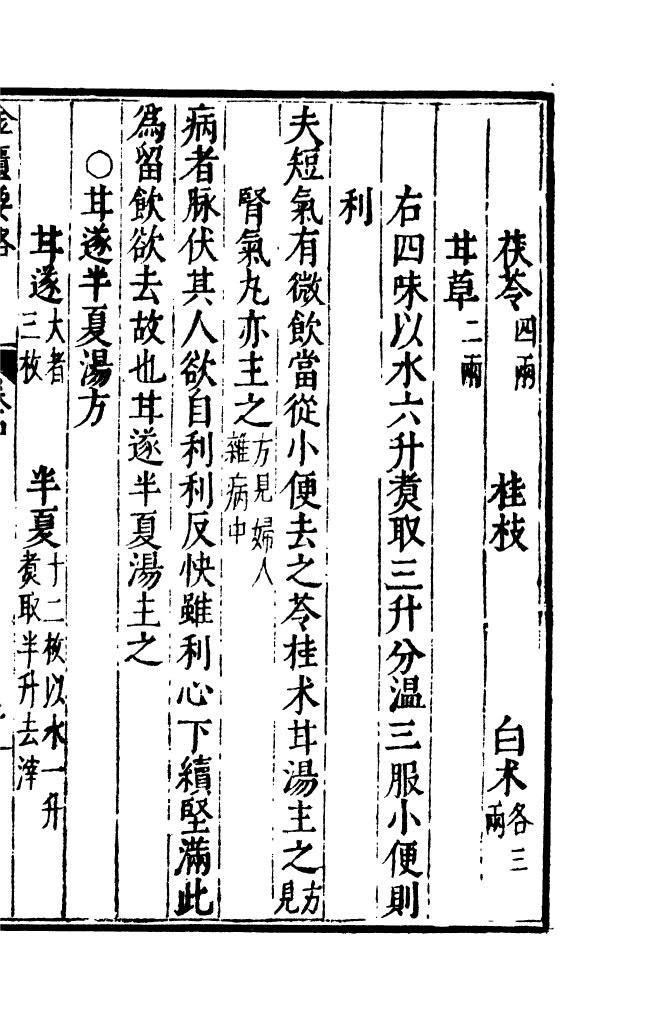 茯苓四兩 桂枝 白术各三兩
甘草二兩
右四味以水六升煑取三升分温三服小便則
利
夫短氣有微飲當從小便去之苓桂术甘湯主之方見
腎氣丸亦主之方見婦人雜病中
病者脉伏其人欲自利利反快雖利心下續堅滿此
為留飲欲去故也甘遂半夏湯主之
○甘遂半夏湯方
甘遂大者三枚 半夏十二枚以水一升煑取半升去滓
金匱要略